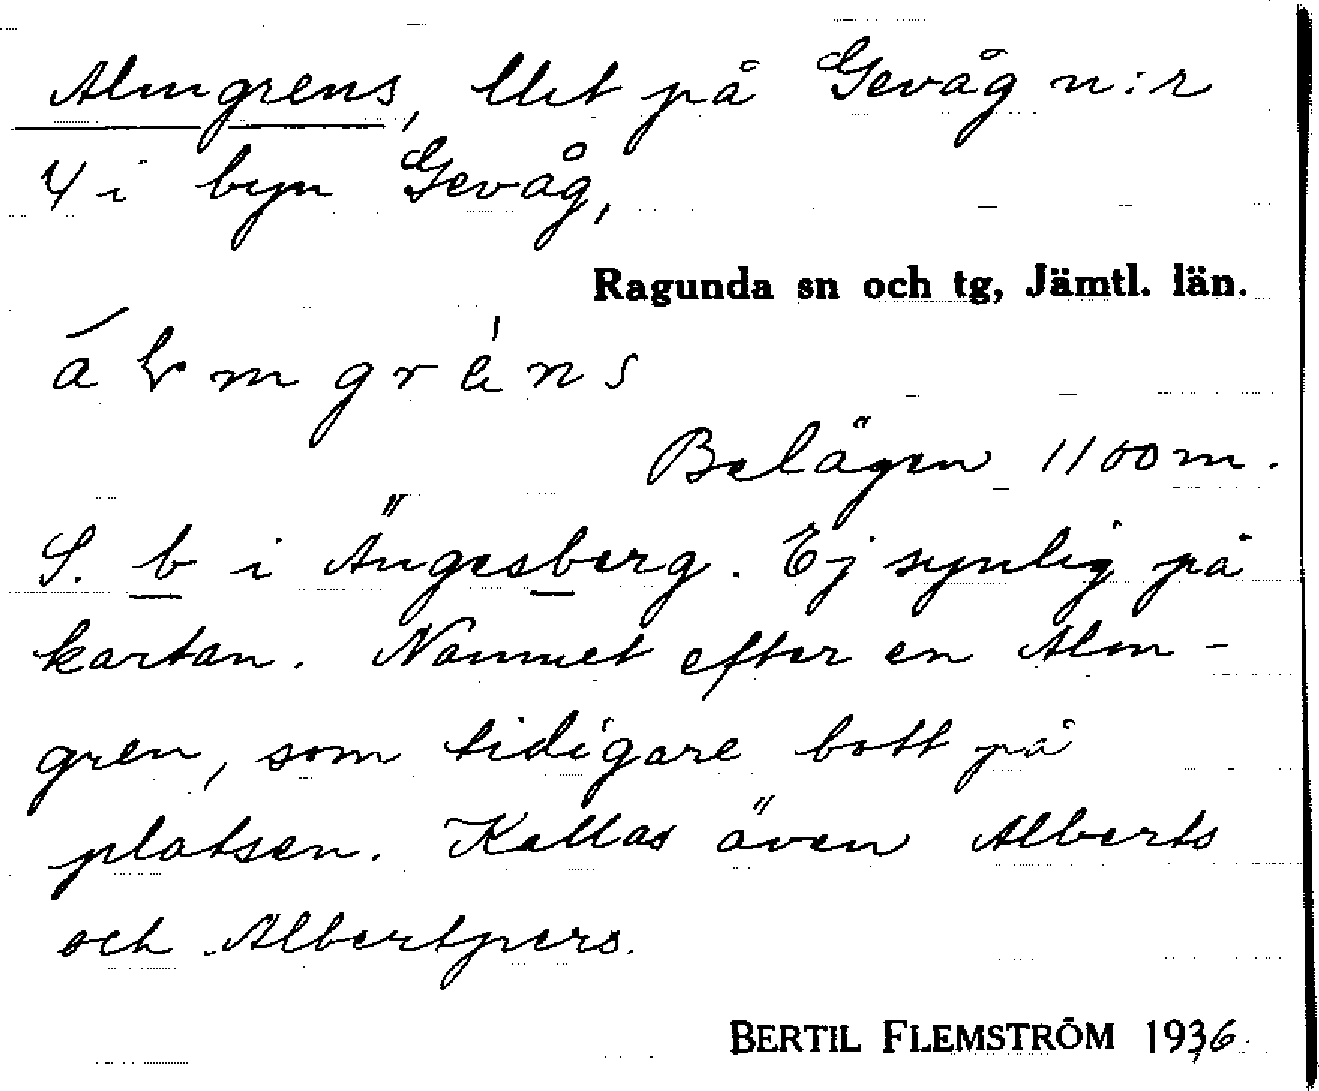 Almgrens, lht på Gevåg n:r
4 i byn Gevåg,
Ragunda sn och tg, Jämtl. län.
Belägen 1100 m.
S. b i Ängesberg. Ej synlig på
kartan. Namnet efter en Alm-
gren, som tidigare bott på
platsen. Kallas även Alberts
och Albertpers.
BERTIL FLEMSTRÖM 1936